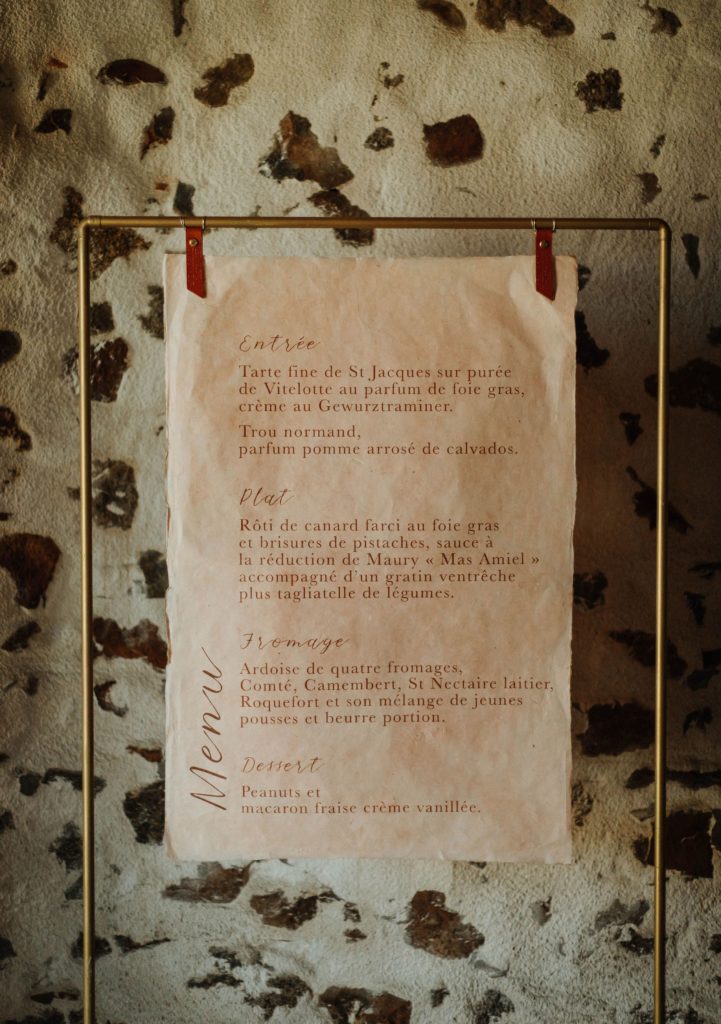 Menu
Entrée
Tarte fine de St Jacques sur purée
de Vitelotte au parfum de foie gras,
crème au Gewurztraminer.
Trou normand,
parfum pomme arrosé de calvados.
Plat
Rôti de canard farci au foie gras
et brisures de pistaches, sauce à
la réduction de Maury « Mas Amiel »
accompagné d'un gratin ventrêche
plus tagliatelle de légumes.
Fromage
Ardoise de quatre fromages,
Comté, Camembert, St Nectaire laitier,
Roquefort et son mélange de jeunes
pousses et beurre portion.
Dessert
Peanuts et
macaron fraise crème vanillée.